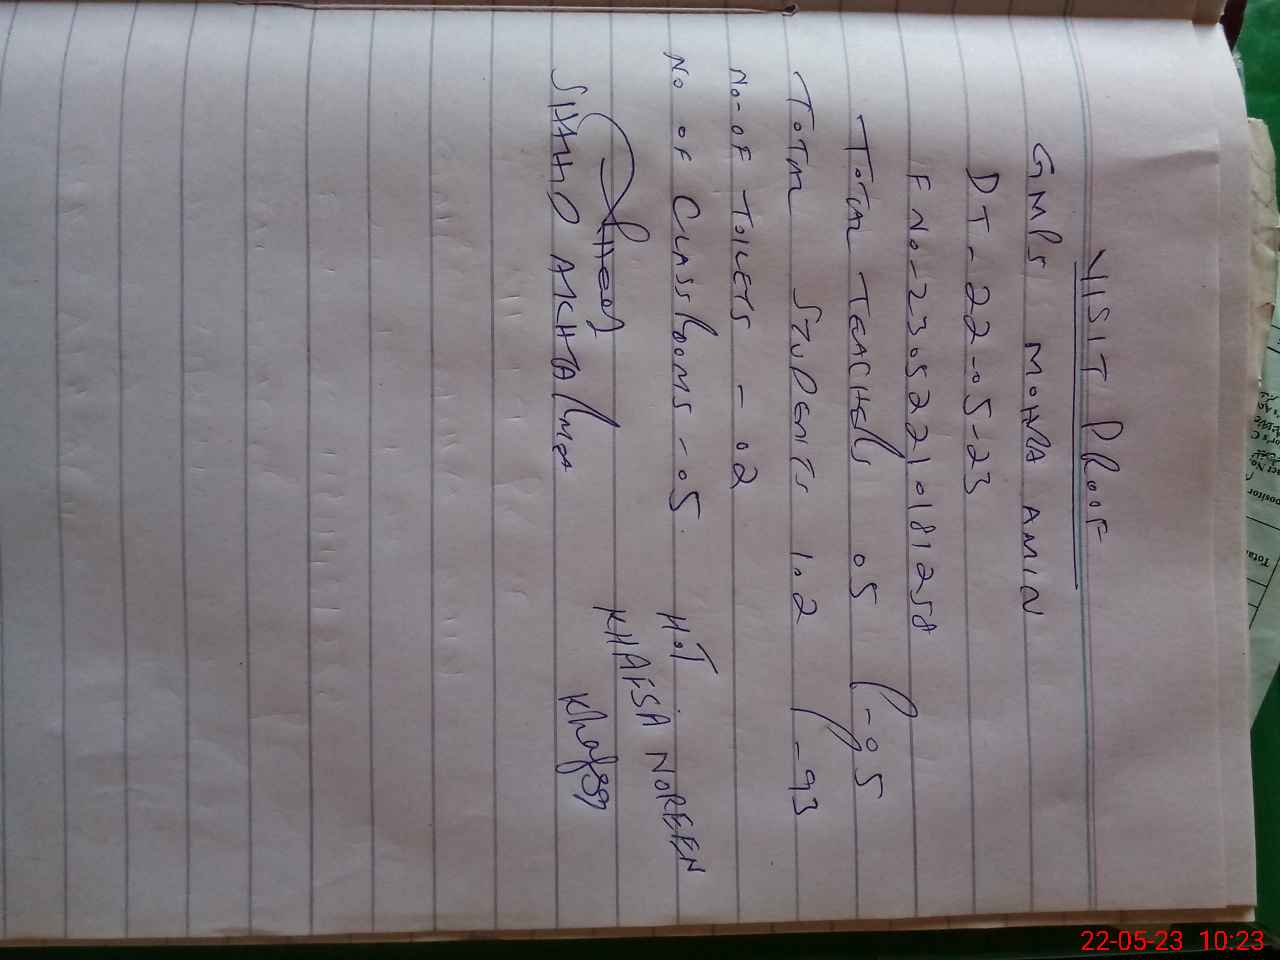 VISIT PROOF
GMPS MOHRA AMIN
DT - 22-05-23
F NO - 23052210181258
TOTAL TEACHERS 05 P-05
TOTAL STUDENTS 102 P-93
NO-OF TOILETS - 02
NO OF CLASSROOMS - 05
HT
KHAFSA NOREEN
Khafsa
SHAHID
Total
22-05-23 10:23